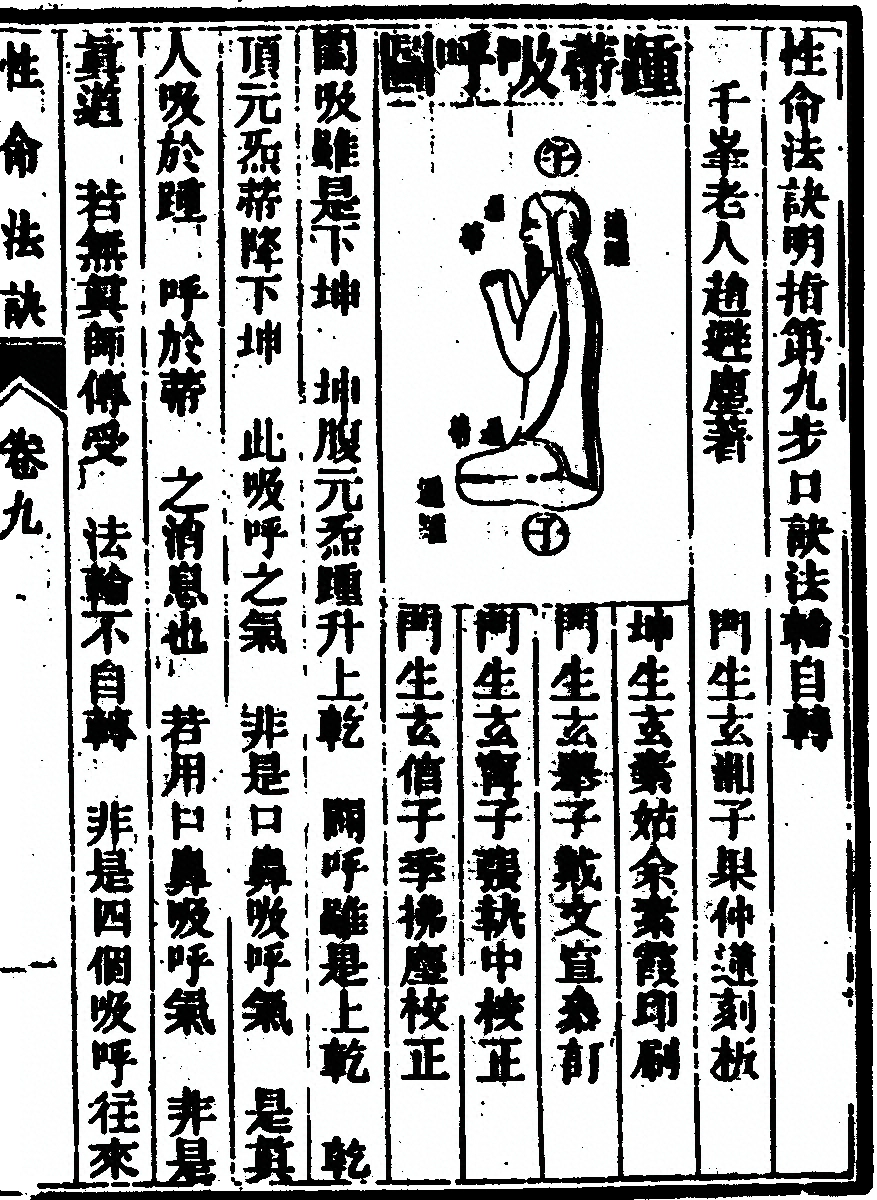 性命法訣明指第九步口訣法輪自轉
千峯老人趙避塵著
門生玄湘子果仲蓮刻板
踵蒂吸呼圖
午
通踵
通蒂
通蒂
通踵
子
坤生玄素姑余素霞印刷
門生玄舉子戴文宣參訂
門生玄甯子張執中校正
門生玄俏子季拂塵校正
闔吸雖是下坤 坤腹元炁踵升上乾 闢呼雖是上乾 乾
頂元炁蒂降下坤 此吸呼之氣 非是口鼻吸呼氣 是眞
人吸於踵 呼於蒂 之消息也 若用口鼻吸呼氣 非是
眞道 若無眞師傳受 法輪不自轉 非是四個吸呼往來
性命法訣 卷九 一